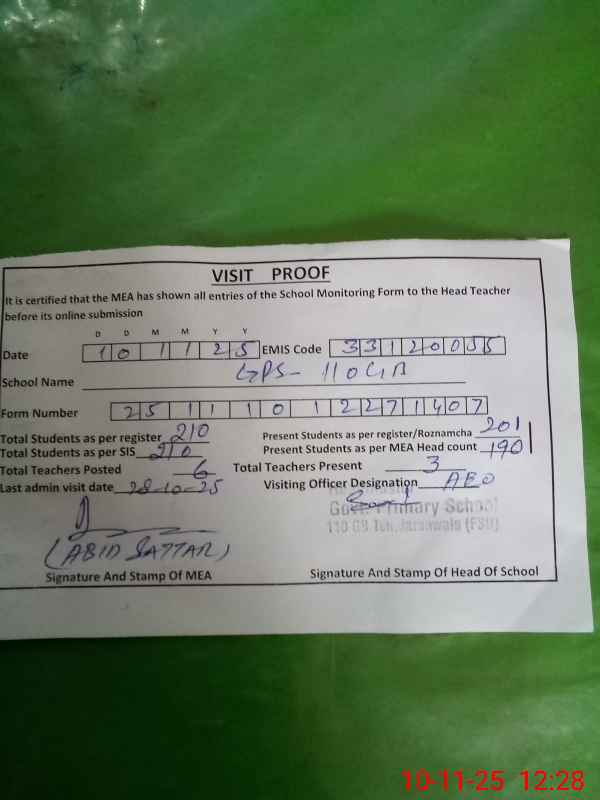 VISIT PROOF
It is certified that the MEA has shown all entries of the School Monitoring Form to the Head Teacher
before its online submission
D D M M Y Y
Date 10 11 25 EMIS Code 33120055
School Name GPS- 110 GB
Form Number 25111012271407
Total Students as per register 210 Present Students as per register/Roznamcha 201
Total Students as per SIS 210 Present Students as per MEA Head count 190
Total Teachers Posted 6 Total Teachers Present 3
Last admin visit date 28-10-25 Visiting Officer Designation AEO
Govt. Primary School
110 GB Teh. Jaranwala (FSD)
(ABID SATTAR)
Signature And Stamp Of MEA Signature And Stamp Of Head Of School
10-11-25 12:28